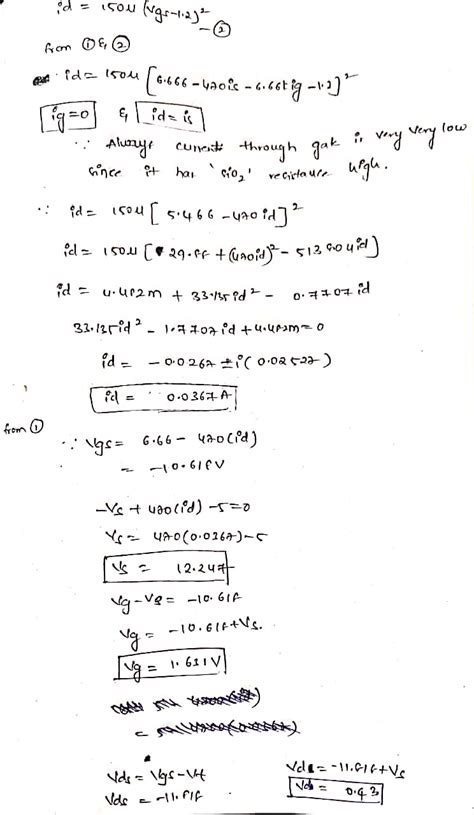 id = 150µ (Vgs-1.2)² - ②
from ① & ②
id = 150µ [6.666 - 470is - 6.66kig - 1.2]²
ig=0 & id = is
∵ Always currents through gate is very very low
since it has 'SiO₂' resistance high.
∵ id = 150µ [5.466 - 470id]²
id = 150µ [29.88 + (470id)² - 5138.04id]
id = 4.482m + 33.135id² - 0.7707id
33.135id² - 1.7707id + 4.482m = 0
id = -0.0267 ± i(0.02527)
id = 0.0367A
from ①
∵ Vgs = 6.66 - 470(id)
= -10.618V
-Vs + 470(id) - 5 = 0
Vs = 470(0.0367) - 5
Vs = 12.247
Vg - Vs = -10.618
Vg = -10.618 + Vs.
Vg = 1.631V
Vds = Vgs - Vt
Vds = -11.818
Vd = -11.818 + Vs
Vd = 0.43